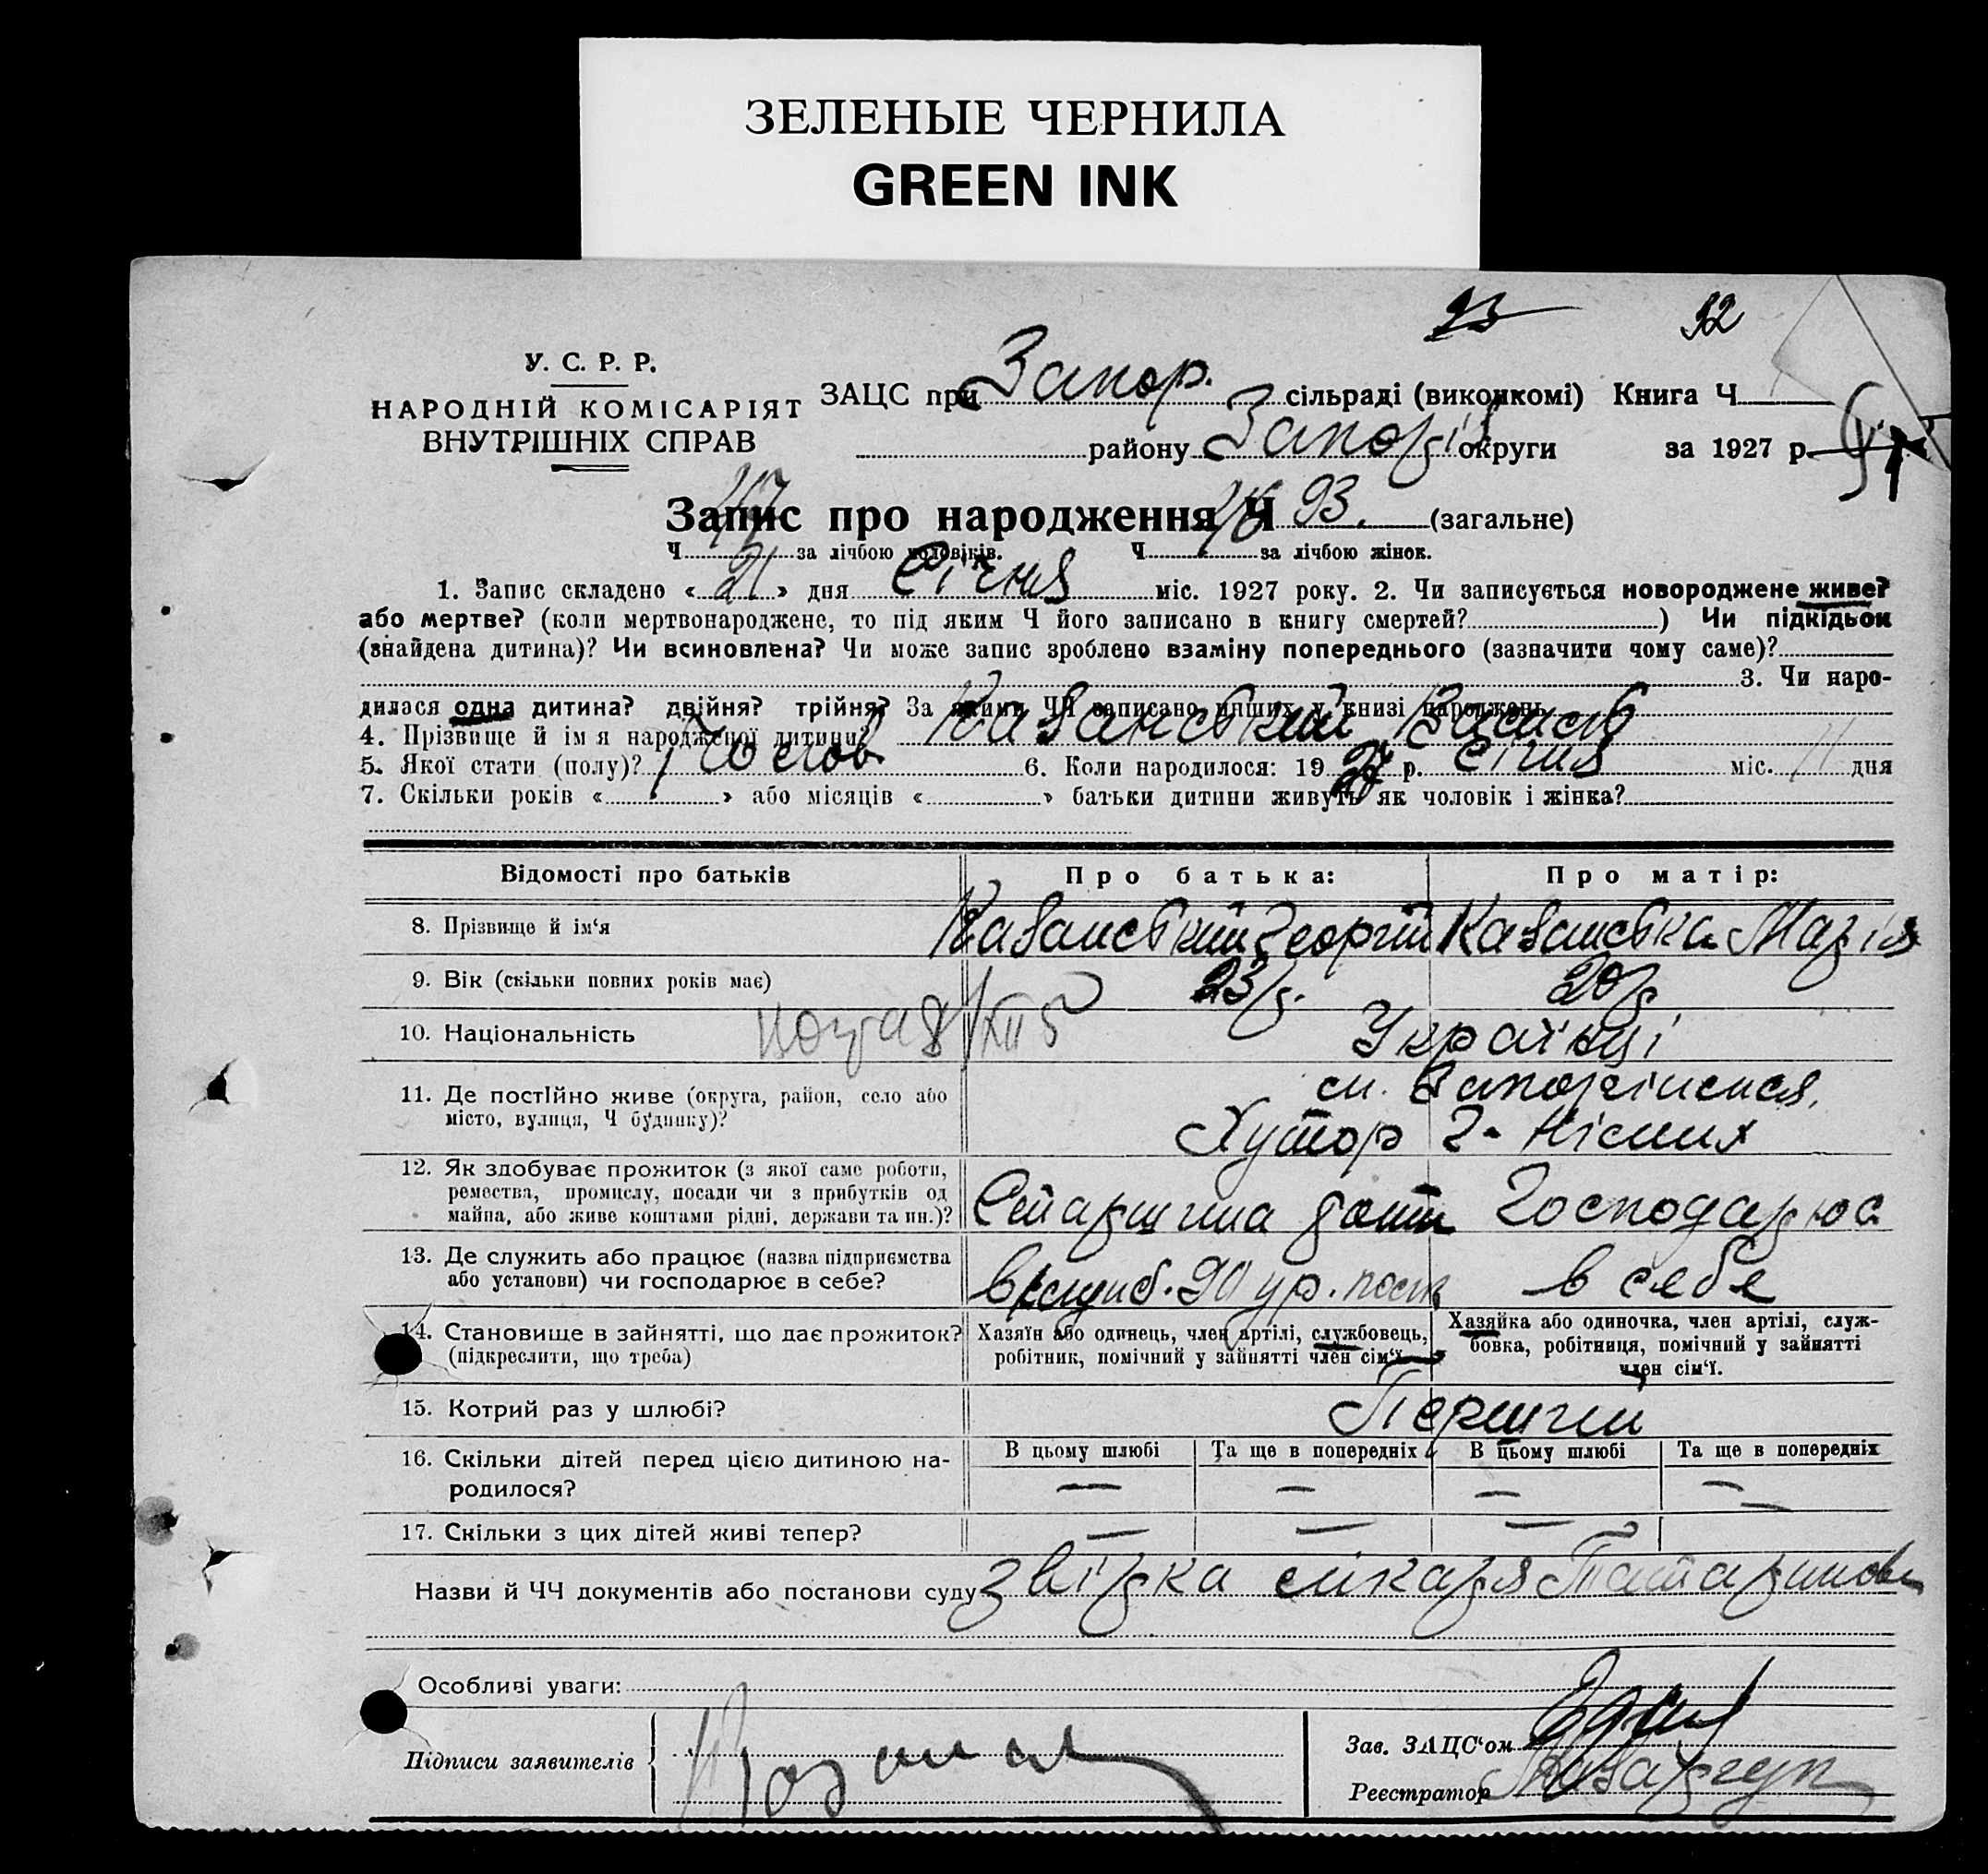 ЗЕЛЕНЫЕ ЧЕРНИЛА
GREEN INK
23 32
У. С. Р. Р.
НАРОДНІЙ КОМІСАРІЯТ
ВНУТРІШНІХ СПРАВ
ЗАЦС при Запор. сільраді (виконкомі) Книга Ч
району Запоріз округи за 1927 р.
Запис про народження Ч 93. (загальне)
Ч 47 за лічбою чоловіків. Ч за лічбою жінок.
1. Запис складено « 21 » дня Січня міс. 1927 року. 2. Чи записується новороджене живе?
або мертве? (коли мертвонароджене, то під яким Ч його записано в книгу смертей? ) Чи підкідьок
(знайдена дитина)? Чи всиновлена? Чи може запис зроблено взаміну попереднього (зазначити чому саме)?
3. Чи наро-
дилася одна дитина? двійня? трійня? За якими ЧЧ записано инших у книзі народжень
4. Прізвище й ім я народженої дитини? Казанський
5. Якої стати (полу)? Чолов 6. Коли народилося: 19 27 р. січня міс. 11 дня
7. Скільки років « » або місяців « » батьки дитини живуть як чоловік і жінка?
Відомості про батьків Про батька: Про матір:
8. Прізвище й ім‘я Казанський Георгій Казанська Марія
9. Вік (скільки повних років має) 23 р. 20 р
10. Національність Українці
11. Де постійно живе (округа, район, село або
місто, вулиця, Ч будинку)?
м. Запоріжжя,
Хутор
12. Як здобуває прожиток (з якої саме роботи,
ремества, промислу, посади чи з прибутків од
майна, або живе коштами рідні, держави та ин.)?
Старшина роти Господарює
13. Де служить або працює (назва підприємства
або установи) чи господарює в себе?
90 в себе
14. Становище в зайнятті, що дає прожиток?
(підкреслити, що треба)
Хазяїн або одинець, член артілі, службовець,
робітник, помічний у зайнятті член сім‘ї.
Хазяйка або одиночка, член артілі, служ-
бовка, робітниця, помічний у зайнятті
член сім‘ї.
15. Котрий раз у шлюбі? Перший
16. Скільки дітей перед цією дитиною на-
родилося?
В цьому шлюбі Та ще в попередніх В цьому шлюбі Та ще в попередніх
— — — —
17. Скільки з цих дітей живі тепер? — — — —
Назви й ЧЧ документів або постанови суду звідка лікаря Татаринова
Особливі уваги:
Підписи заявителів
Зав. ЗАЦС‘ом
Реєстратор